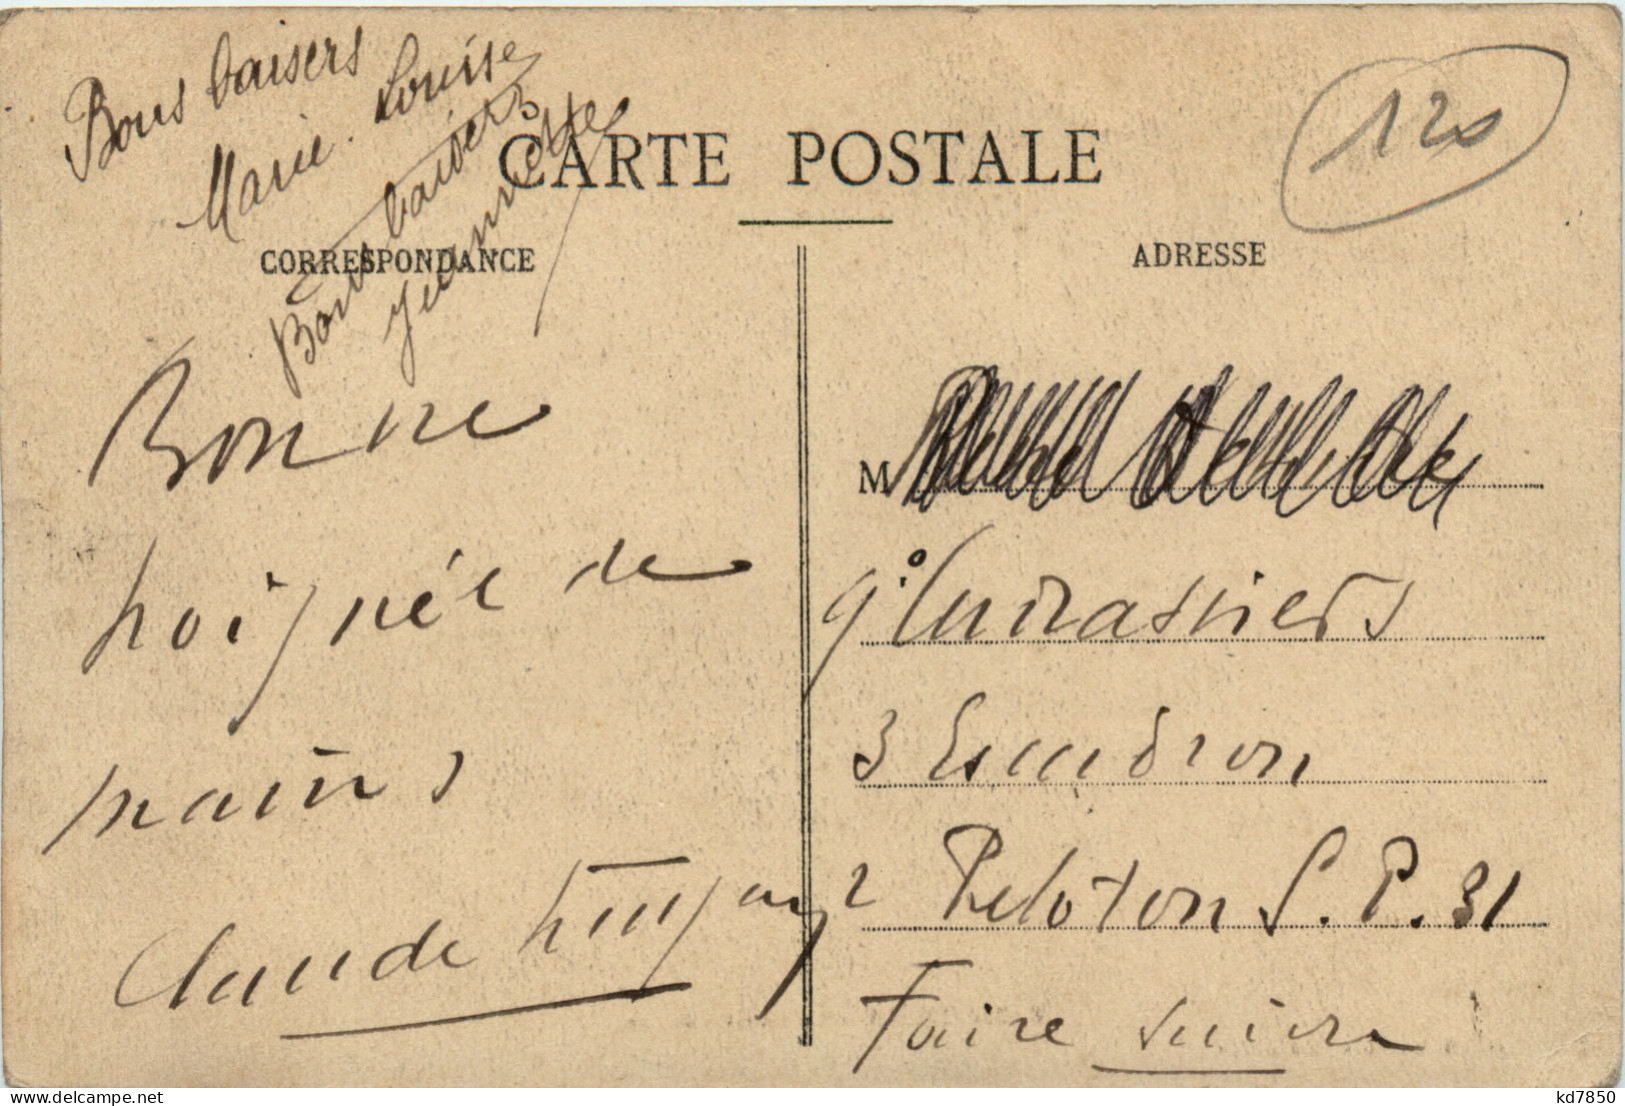 Bons baisers
Marie-Louise
Bons baisers
Jeannette
120
CARTE POSTALE
CORRESPONDANCE
ADRESSE
Bonne
poignée de
mains
Claude
M
9° Cuirassiers
3 Escadron
2 Peloton S.P. 31
Faire suivre
kd7850